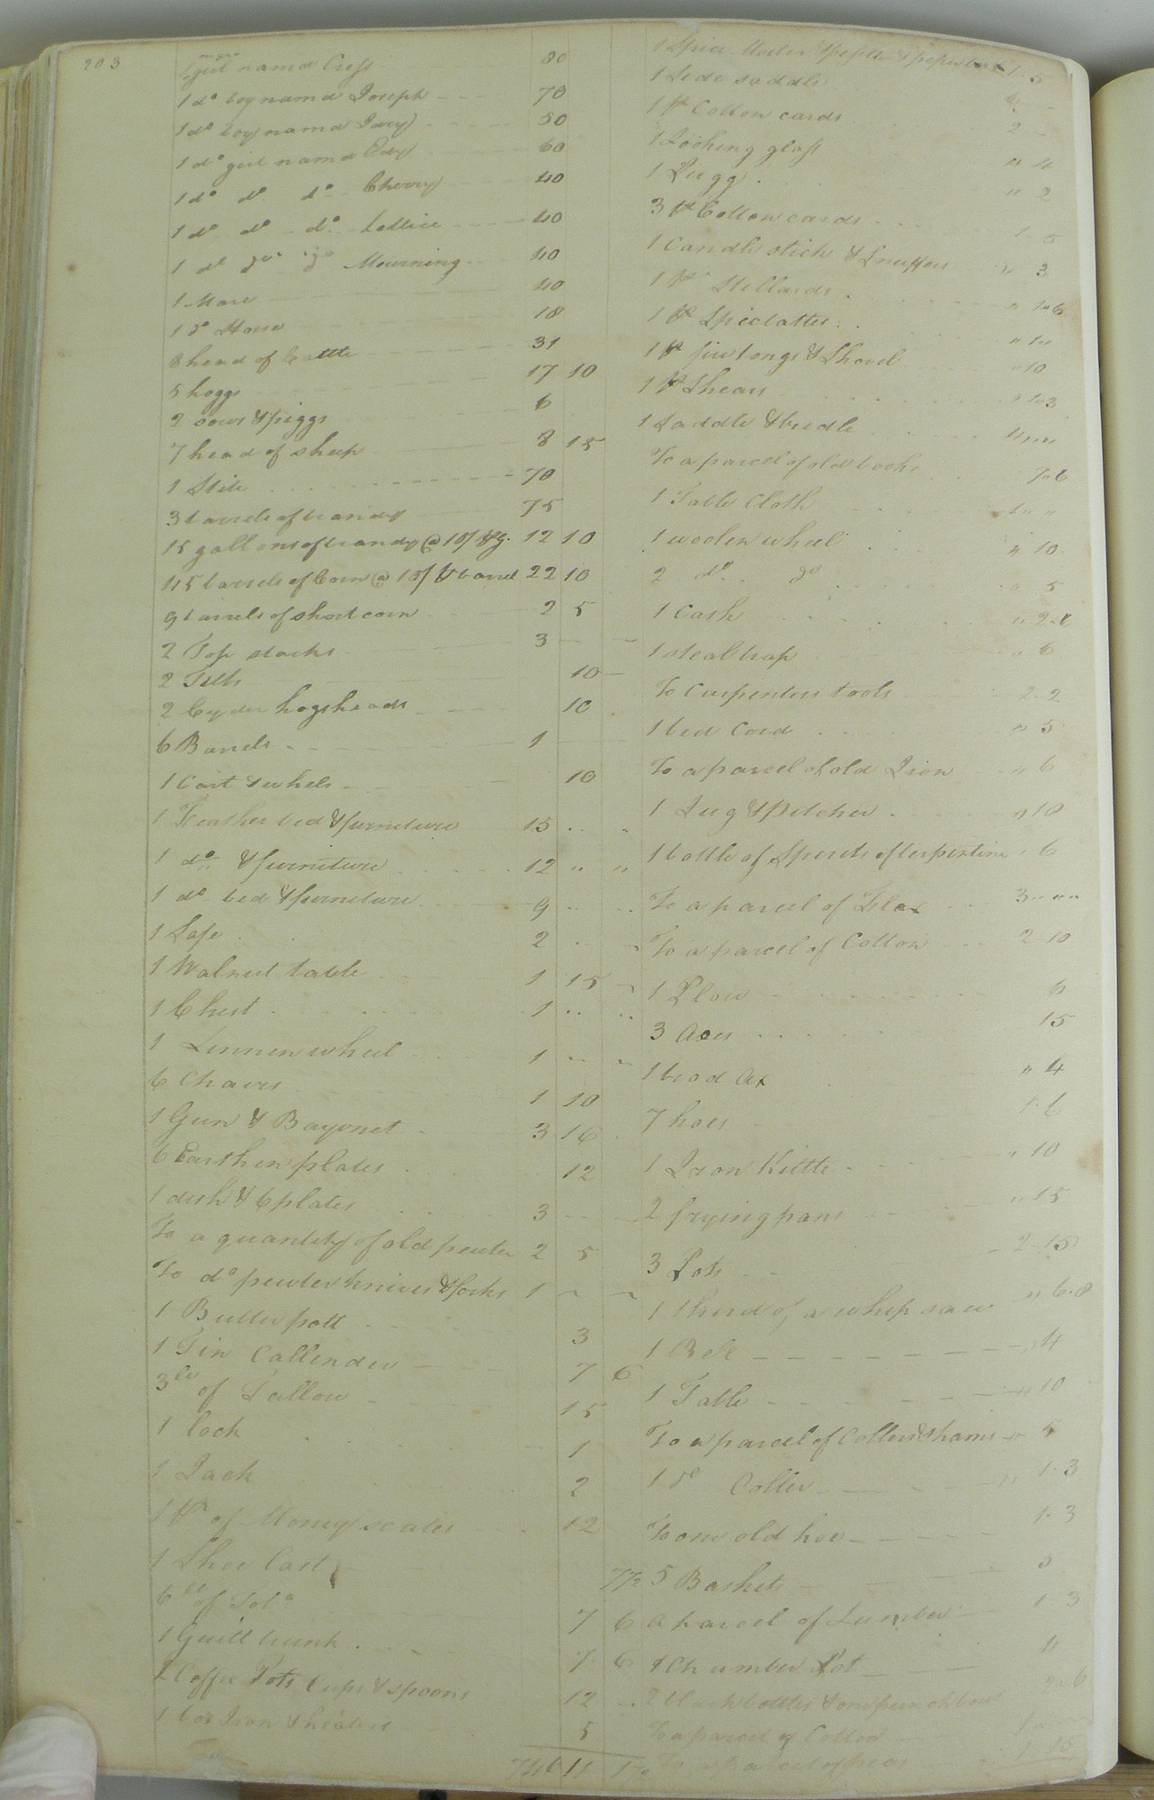 203
1 girl namd Cress 80
1 do boy namd Joseph 70
1 do boy namd Davy 50
1 do girl namd Edy 60
1 do do do Cherry 40
1 do do do Lettice 40
1 do do do Mourning 40
1 Mare 40
1 do Horse 18
8 head of Cattle 31
5 hoggs 17 10
2 sows & piggs 6
7 head of sheep 8 15
1 Still 70
3 barrels of brandy 75
15 gallons of brandy @ 10/ 12 10
45 barrels of Corn @ 10/ barrel 22 10
9 barrels of short corn 2 5
2 Top stacks 3
2 10
2 Cyder hogsheads 10
6 Barrels 1
1 Cart & whels 10
1 Feather bed & furniture 15
1 do & furniture 12
1 do bed & furniture 9
1 Safe 2
1 Walnut table 1 15
1 Chest 1
1 Linnen wheel 1
6 Chares 1 10
1 Gun & Bayonet 3 16
6 Earthen plates 12
1 dish & 6 plates 3
To a quantity of old pewter 2 5
To do pewter knives & forks 1
1 Butter pott 3
1 Tin Callender 7 6
3 lb of Tallow 15
1 lock 1
1 Jack 2
1 pr of Money scales 12
1 Shoe Last 7½
6 lb of 7 6
1 Guilt trunk 7 6
2 Coffee Pots Cups & spoons 12
1 box Iron & heaters 5
746 11
1 Spice & pepper box 1 5
1 Side saddle
1 pr Cotton cards 2
1 Looking glass 4
1 Jugg 2
3 pr Cotton cards 1 5
1 Candle stick & Snuffers 3
1 pr Stellards
1 pr Spectatles
1 pr fire tongs & Shovel 10
1 pr Shears
1 Saddle & bridle
To a parcel of old books 7 6
1 Table Cloth
1 woolen wheel 10
2 do do 5
1 Cash
1 steal trap 6
To Carpenters tools 2 2
1 bed Cord 5
To a parcel of old Iron 6
1 Jug & Pitcher 10
1 bottle of Spirits of terpentine 6
To a parcel of Flax 3
To a parcel of Cotton 2 10
1 Plow 6
3 Axes 15
1 brod Ax 4
7 hoes 1 6
1 Iron Kittle 10
2 frying pans 15
3 Pots 2 15
1 third of a whip saw 6 8
1 Bell 4
1 Table 10
To a parcel of Collers & hames 5
1 do Coller 1 3
To one old hoe 1 3
5 Baskets 3
A parcel of Lumber 1 3
1 Chamber Pot 4
2 black bottles & one punch bowl
To a parcel of Cotton
To a parcel of peas